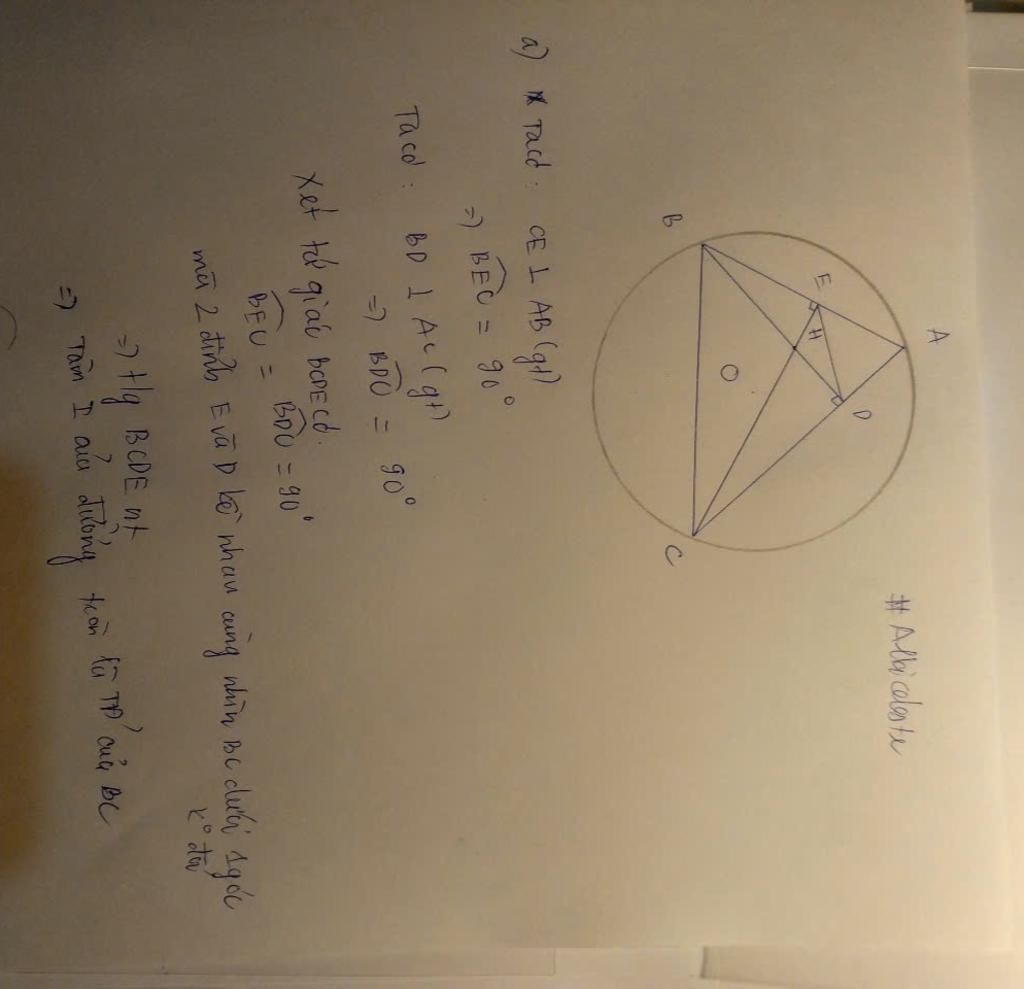 #Albiceleste
A
E
D
H
B
O
C
a) Tacó: CE ⊥ AB (gt)
=) BEC = 90°
Tacó: BD ⊥ AC (gt)
=) BDC = 90°
Xét tứ giác BCDE có:
BEC = BDC = 90°
mà 2 đỉnh E và D kề nhau cùng nhìn BC dưới 1 góc
k° đổi
=) t/g BCDE nt
=) Tâm I của đường tròn là TĐ của BC